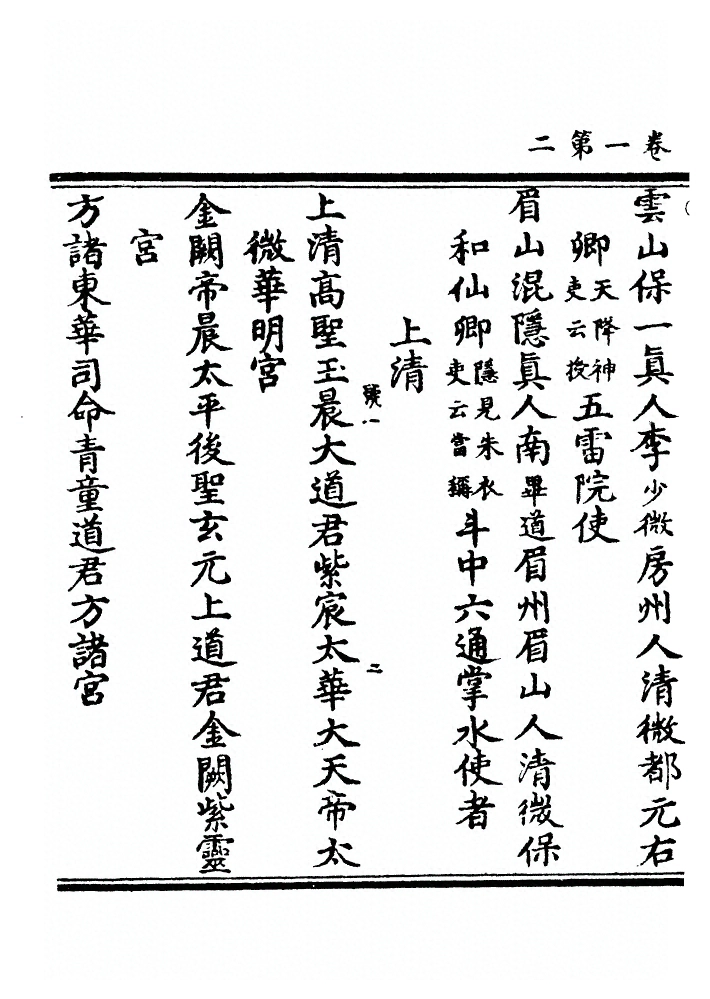 卷一第二
雲山保一眞人李少微房州人清微都元右
卿天降神吏云授五雷院使
眉山混隱眞人南畢道眉州眉山人清微保
和仙卿隱見朱衣吏云當稱斗中六通掌水使者
上清
號一
二
上清高聖玉晨大道君紫宸太華大天帝太
微華明宮
金闕帝晨太平後聖玄元上道君金闕紫靈
宮
方諸東華司命青童道君方諸宮